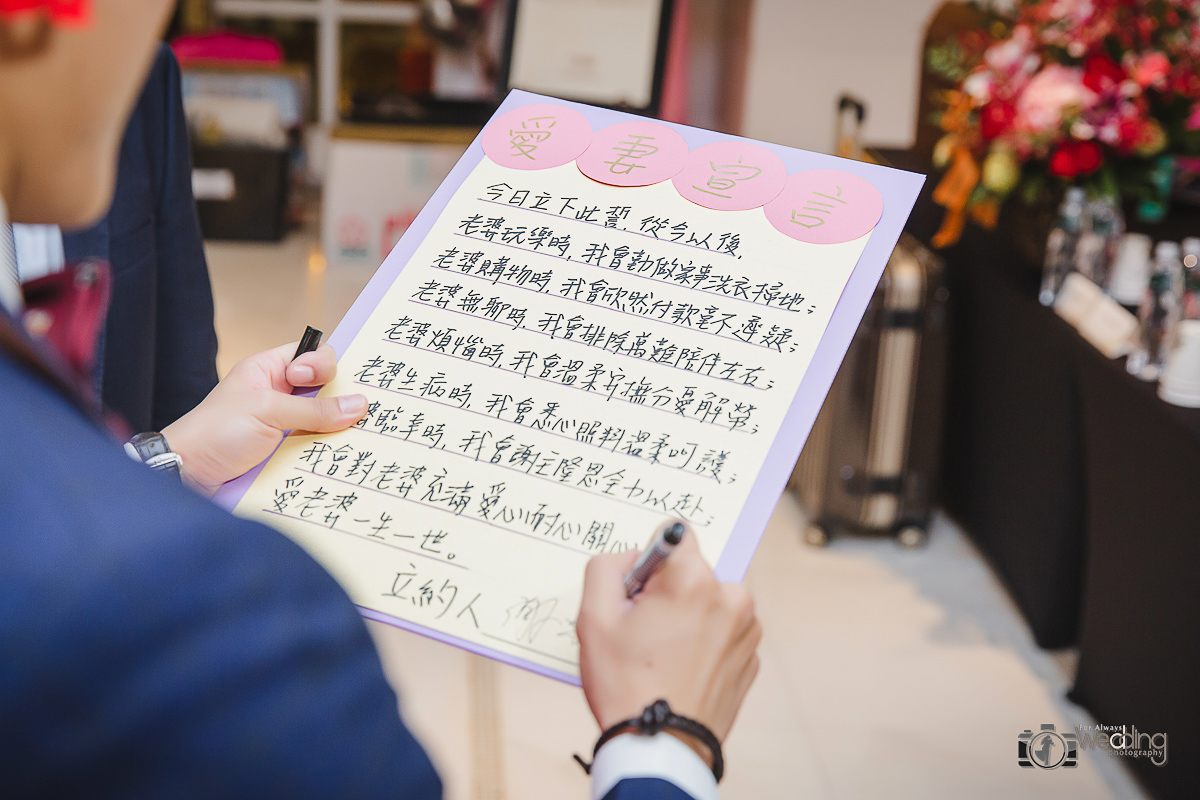 愛妻宣言
今日立下此誓,從今以後,
老婆玩樂時,我會勤做家事洗衣掃地;
老婆購物時,我會欣然付款毫不遲疑;
老婆無聊時,我會排除萬難陪伴左右;
老婆煩惱時,我會溫柔安撫分憂解勞;
老婆生病時,我會悉心照料溫柔呵護;
婆臨幸時,我會謝主隆恩全力以赴;
我會對老婆充滿愛心耐心關心
愛老婆一生一世。
立約人 謝
For Always
Wedding
photography